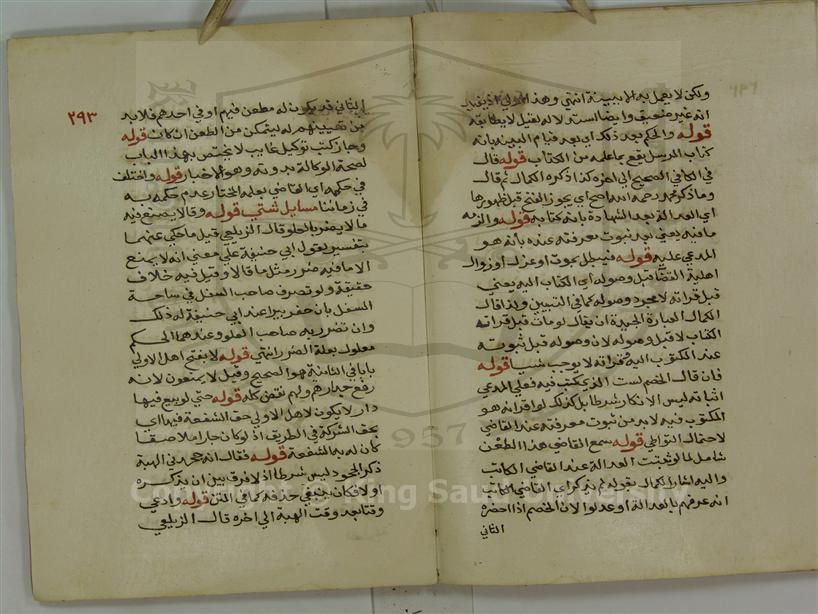 ولكن لا يعمل به الا ببينة انتهى وهذا اولى اذ يفيد
انه غير ضعيف وايضا استدلاله لعقيل لا يطابقه
قوله والحكم بعد ذلك اي بعد قيام البينه بانه
كتاب المرسل يقع بما علمه من الكتاب قوله قال
في الكافي الصحيح الى اخره كذا ذكره الكمال ثم قال
وما ذكر محمد رحمه الله اصح اي يجوز الفتح قبل ظهورها
اي العدالة بعد الشهادة بانه كتابه قوله والزمه
ما فيه يعني بعد ثبوت معرفته عنده بانه هو
المدعى عليه قوله فيبطل بموت او عزل او زوال
اهلية القضا قبل وصوله اي الكتاب اليه يعني
قبل قراته لا مجرد وصوله كما في التبيين ولذا قال
الكمال العبارة الجيدة ان يقال لو مات قبل قراته
الكتاب لا قبل وصوله لان وصوله قبل ثبوته
عند المكتوب اليه وقراته لا يوجب شيا قوله
فان قال الخصم لست الذي كتب فيه فعلى المدعي
اثباته ليس الانكار شرطا بل كذلك لو اقر انه هو
المكتوب فيه لا بد من ثبوت معرفته عند القاضي
لاحتمال التواطي قوله سمع القاضي هذا الطعن
شامل لما لو ثبتت العدالة عند القاضي الكاتب
واليه اشار الكمال بقوله ثم يذكر اي القاضي الكاتب
انه عرفهم بالعدالة او عدلوا لان الخصم اذا احضره
الثاني
٢٩٣
الثاني قد يكون له مطعن فيهم او في احدهم فلا بد
من تعيينهم له ليتمكن من الطعن ان كان قوله
وجاز كتب توكيل غايب لا يختص بهذا الباب
لصحة الوكالة بدونه وهو الاخبار قوله واختلف
في حكمه اي القاضي بعلمه المختار عدم حكمه به
في زماننا مسايل شتى قوله وقالا يصنع فيه
ما لا يضر بالعلو قال الزيلعي قيل ما حكي عنهما
تفسير لقول ابي حنيفة على معنى انه لا يمنع
الا ما فيه ضرر مثل ما قالا وقيل فيه خلاف
حقيقة ولو تصرف صاحب السفل في ساحة
السفل بان حفر بيرا عند ابي حنيفة له ذلك
وان تضرر به صاحب العلو وعندهما الحكم
معلول بعلة الضرر انتهى قوله لا يفتح اهل الاولى
بابا في الثانية هو الصحيح وقيل لا يمنعون لانه
رفع جدارهم ولهم نقض كله قوله حتى لو بيع فيها
دار لا يكون لاهل الاولى حق الشفعة فيها اي
بحق الشركة في الطريق اذ لو كان جارا ملاصقا
كان له به الشفعة قوله فقال انه جحدني الهبة
ذكر الجحود ليس شرطا اذ لا فرق بين ان يذكره
اولا فكان ينبغي حذفه كما في المتن قوله وادعى
وقتا بعد وقت الهبة الى اخره قال الزيلعي
Copyright © King Saud University
1957